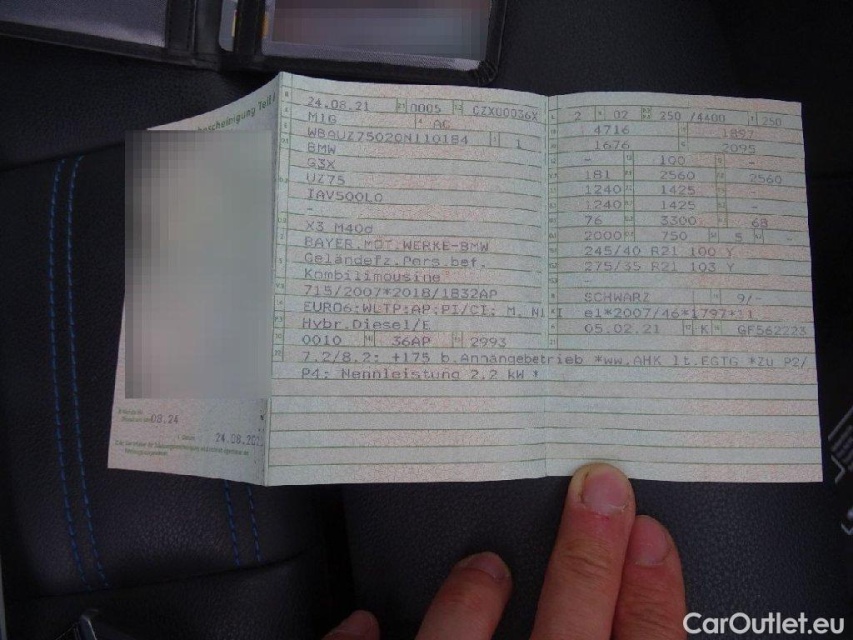 bescheinigung Teil I
24.08.21 0005 CZX00036X
M1G AC
WBAUZ75020N110184 1
BMW
G3X
UZ75
IAV500L0
-
X3 M40d
BAYER.MOT.WERKE-BMW
Geländefz.Pers.bef.
Kombilimousine
715/2007*2018/1832AP
EURO6;WLTP;AP;PI/CI; M, N1 I
Hybr.Diesel/E
0010 36AP 2993
2 02 250 /4400 250
4716 1897
1676 2095
- 100 -
181 2560 2560
1240 1425 -
1240 1425 -
76 3300 68
2000 750 5 -
245/40 R21 100 Y
275/35 R21 103 Y
-
SCHWARZ 9/-
e1*2007/46*1797*11
05.02.21 K GF562223
7.2/8.2: +175 b.Anhängebetrieb *ww.AHK lt.EGTG *zu P2/
P4: Nennleistung 2,2 kW *
08.24
24.08.20
CarOutlet.eu